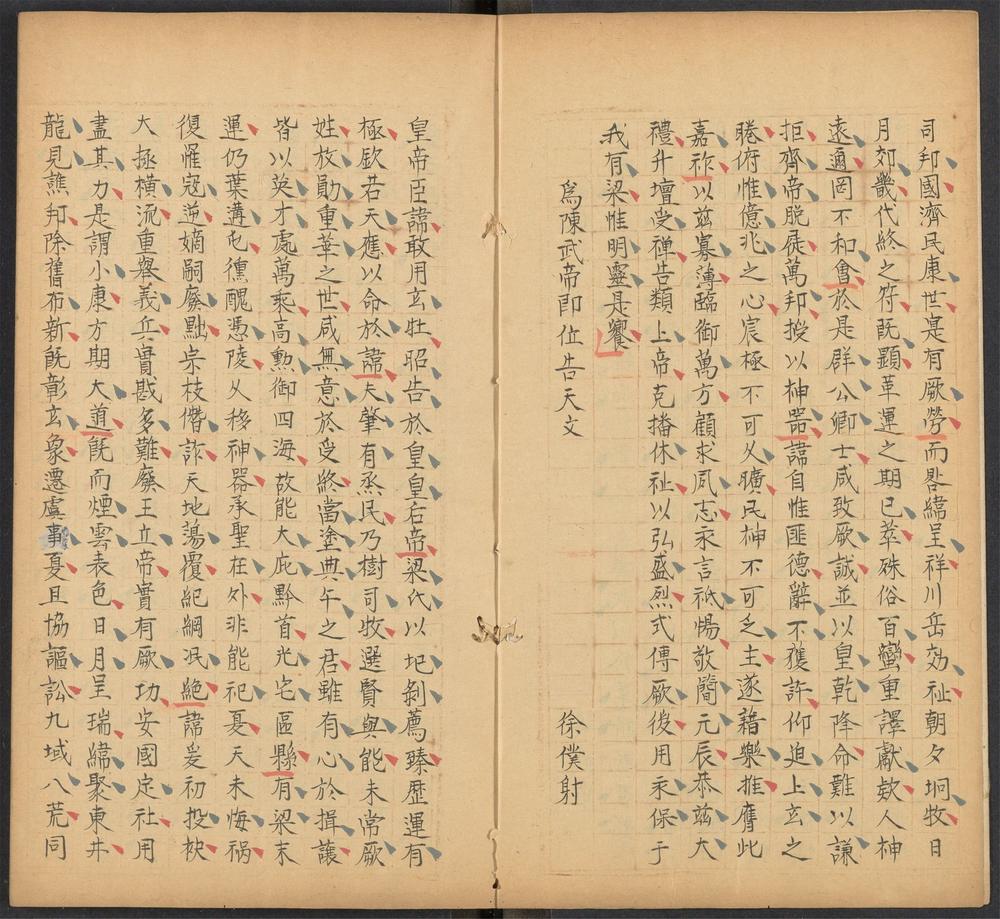 司邦國濟民康世是有厥勞而晷緯呈祥川岳効祉朝夕坰牧日
月郊畿代終之符既顯革運之期已萃殊俗百蠻重譯獻欵人神
遠邇罔不和會於是群公卿士咸致厥誠並以皇乾降命難以謙
拒齊帝脫屣萬邦授以神器諱自惟匪德辭不獲許仰迫上玄之
睠俯惟億兆之心宸極不可久曠民神不可乏主遂藉樂推膺此
嘉祚以茲寡薄臨御萬方顧求夙志永言祗惕敬簡元辰恭茲大
禮升壇受禪告類上帝克播休祉以弘盛烈式傳厥後用永保于
我有梁惟明靈是饗
爲陳武帝即位告天文 徐僕射
皇帝臣諱敢用玄牡昭告於皇皇后帝梁氏以圯剝薦臻歷運有
極欽若天應以命於諱夫肇有烝民乃樹司牧選賢與能未常厥
姓放勛重華之世咸無意於受終當塗典午之君雖有心於揖讓
皆以英才處萬乘高勳御四海故能大庇黔首光宅區縣有梁末
運仍葉遘屯獯醜憑陵久移神器承聖在外非能祀夏天未悔禍
復罹寇逆嫡嗣廢黜宗枝僭詐天地蕩覆紀綱泯絶諱爰初投袂
大拯橫流重舉義兵實戡多難廢王立帝實有厥功安國定社用
盡其力是謂小康方期大道既而煙雲表色日月呈瑞緯聚東井
龍見譙邦除舊布新既彰玄象遷虞事夏且協謳訟九域八荒同